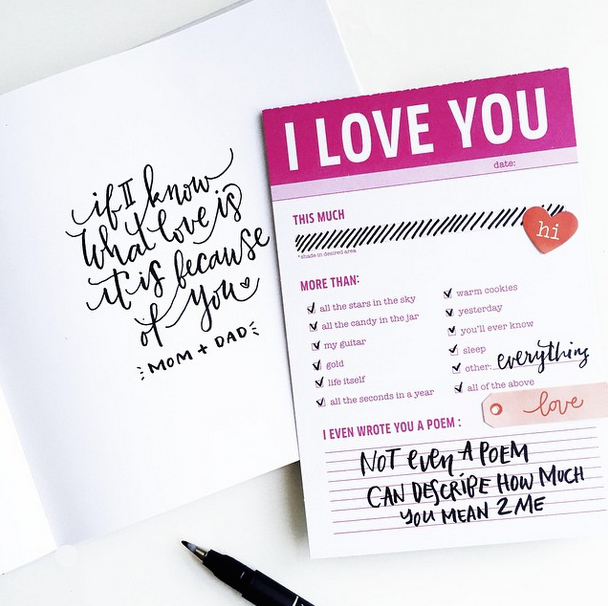 if I know
what love is
it is because
of you
MOM + DAD
I LOVE YOU
date:
THIS MUCH
hi
*shade in desired area
MORE THAN:
all the stars in the sky
all the candy in the jar
my guitar
gold
life itself
all the seconds in a year
warm cookies
yesterday
you'll ever know
sleep
other: everything
all of the above
love
I EVEN WROTE YOU A POEM :
NOT even A POEM
CAN DESCRIBE HOW MUCH
YOU MEAN 2 ME